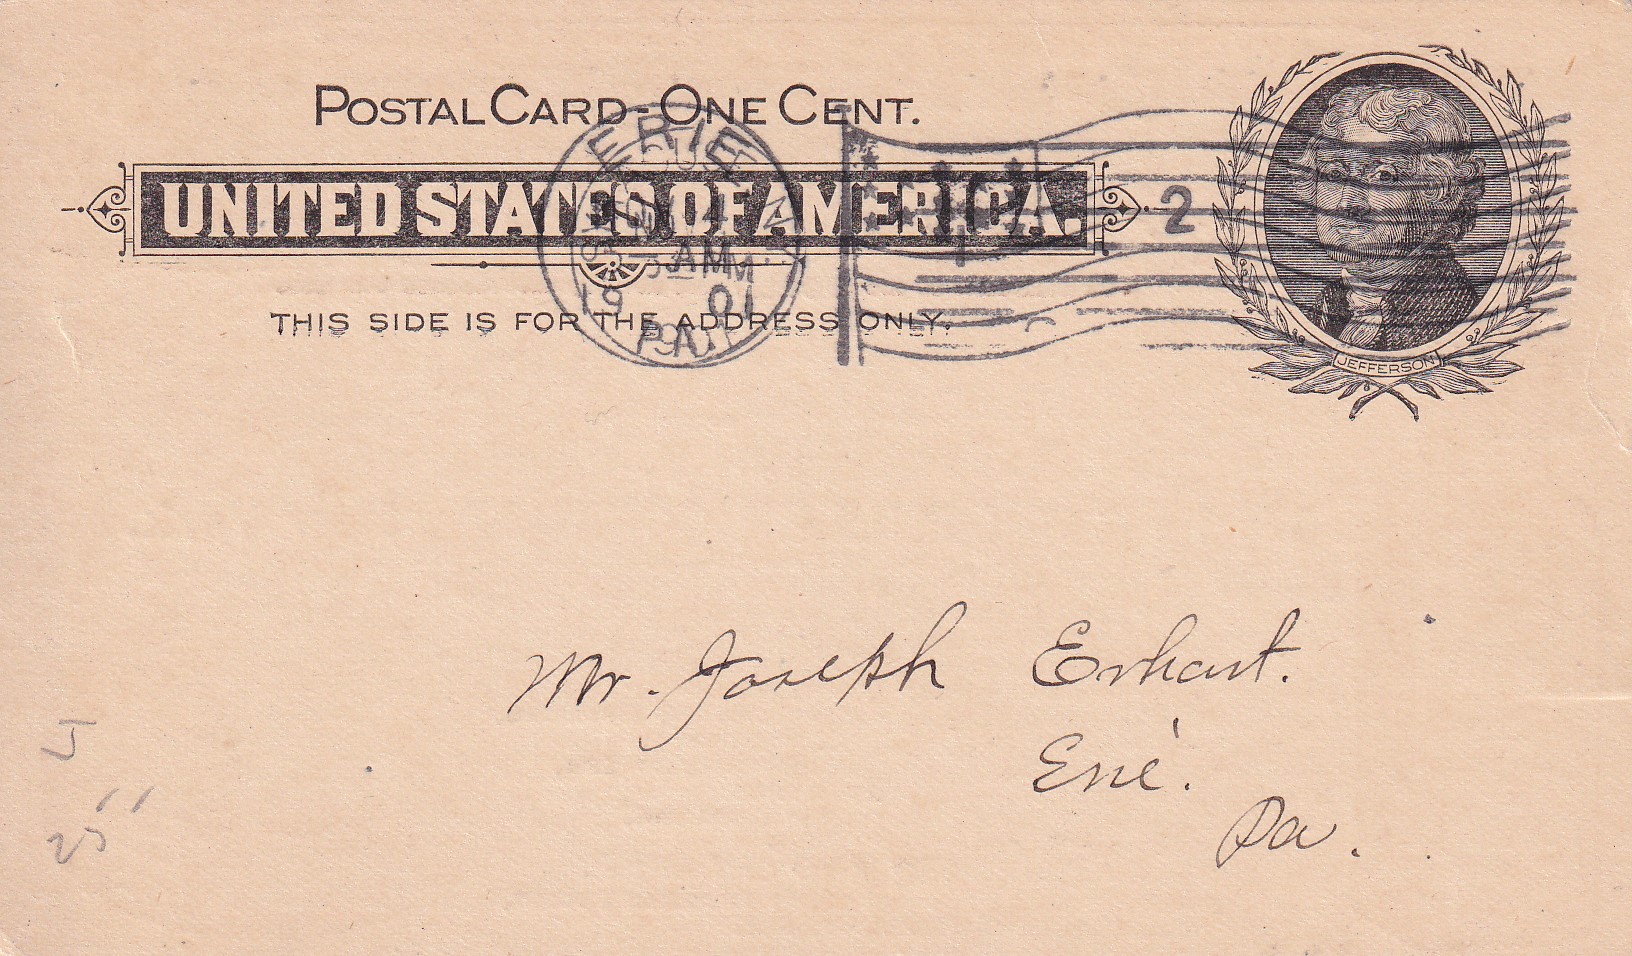 POSTAL CARD - ONE CENT.
UNITED STATES OF AMERICA.
THIS SIDE IS FOR THE ADDRESS ONLY.
ERIE
4
AM
19 01
PA.
2
JEFFERSON
Mr. Joseph Erhart.
Erie.
Pa.